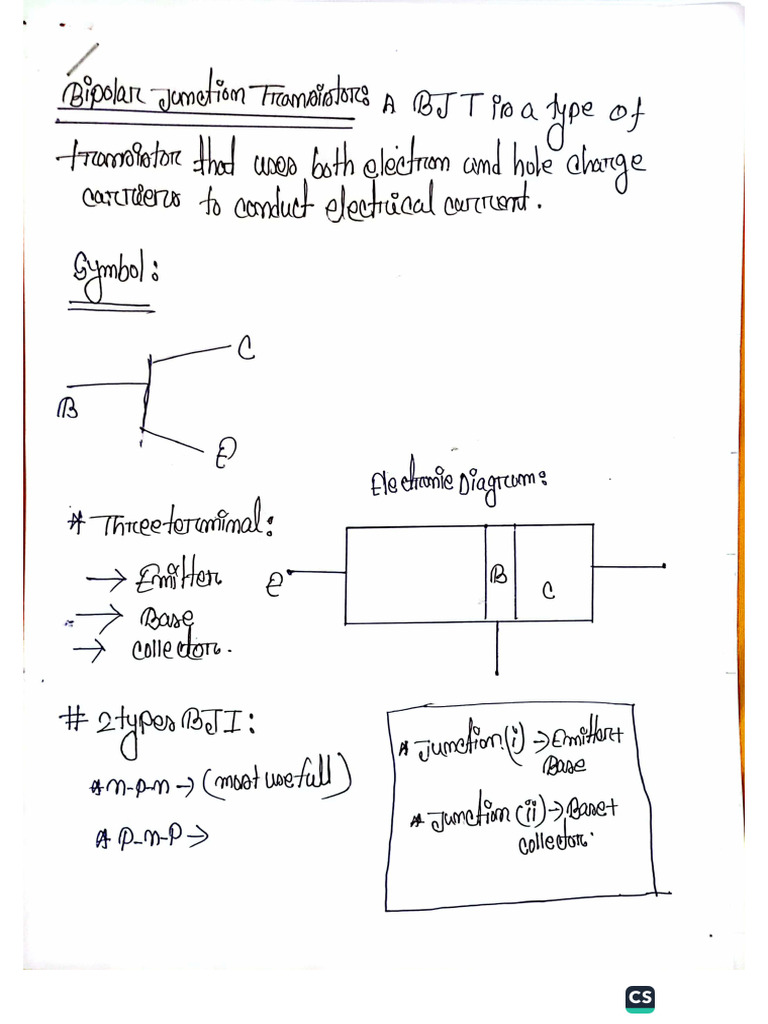 Bipolar Junction Transistor: A BJT is a type of
transistor that uses both electron and hole charge
carriers to conduct electrical current.
Symbol:
C
B
E
Electronic Diagram:
* Three terminal:
→ Emitter
→ Base
→ collector.
e
B
C
# 2 types BJI:
* n-p-n → (most use full)
* P-n-P →
* Junction (i) → Emitter +
Base
* Junction (ii) → Base +
collector.
CS